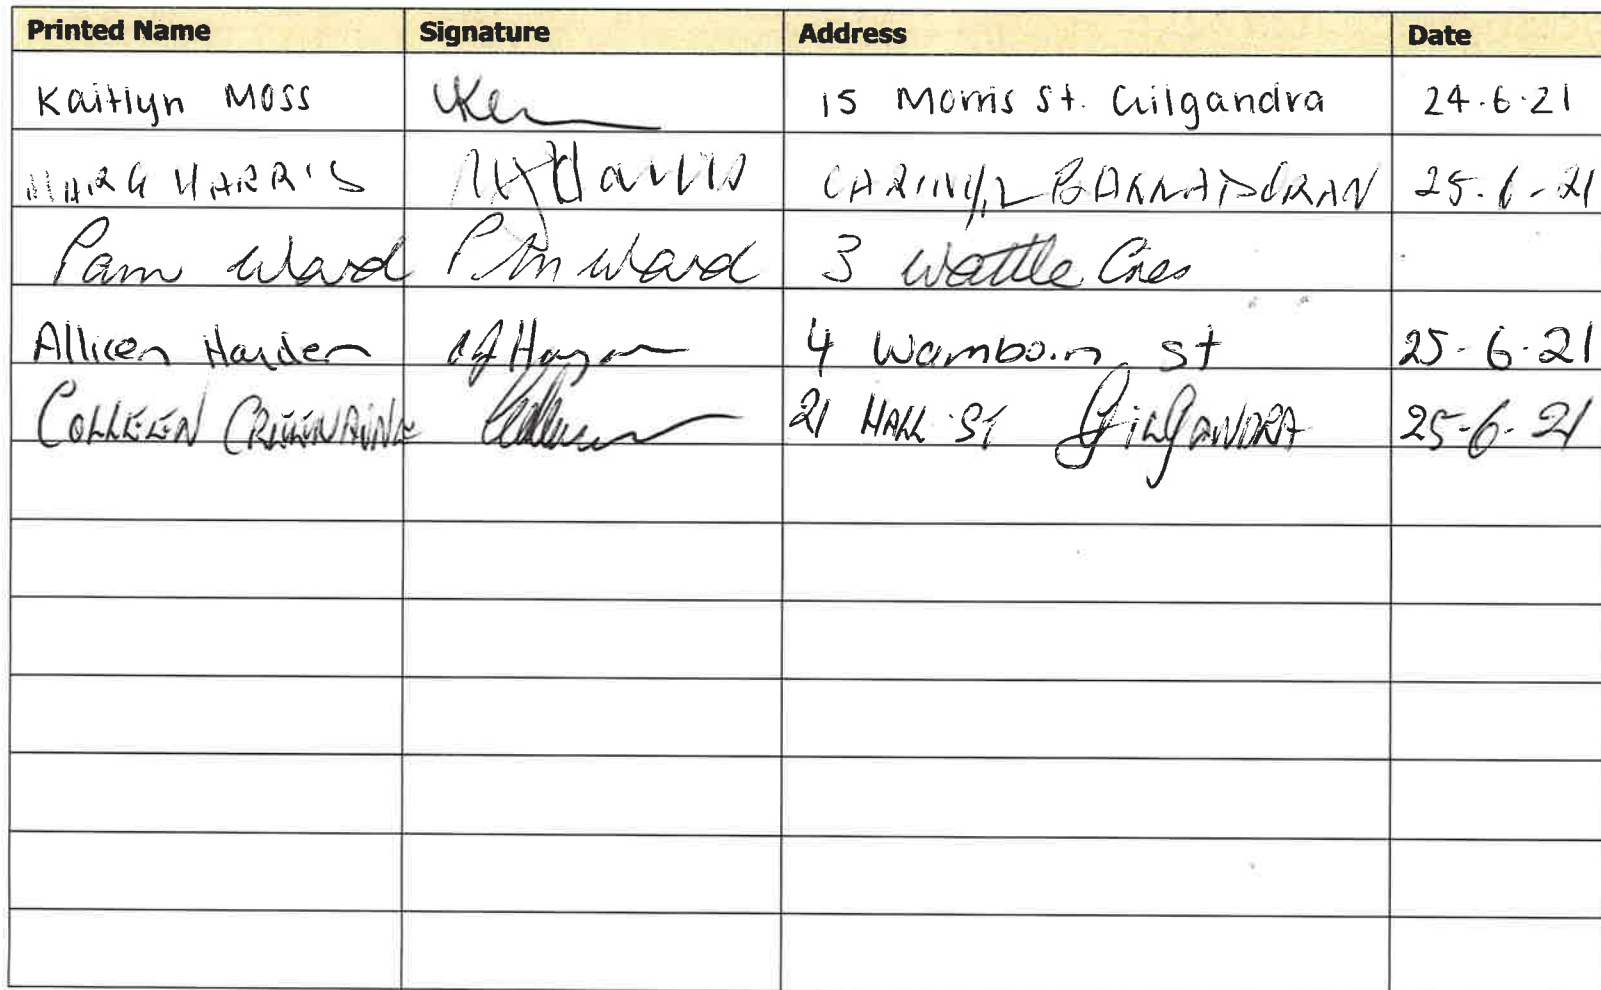 Printed Name Signature Address Date
Kaitlyn Moss 15 Morris St. Gilgandra 24.6.21
MARG HARRIS 25-6-21
Pam Ward Pm Ward 3 Wattle Cres
Allicen Harden 4 Wamboin St 25-6-21
COLLEEN 21 HALL ST GILGANDRA 25-6-21